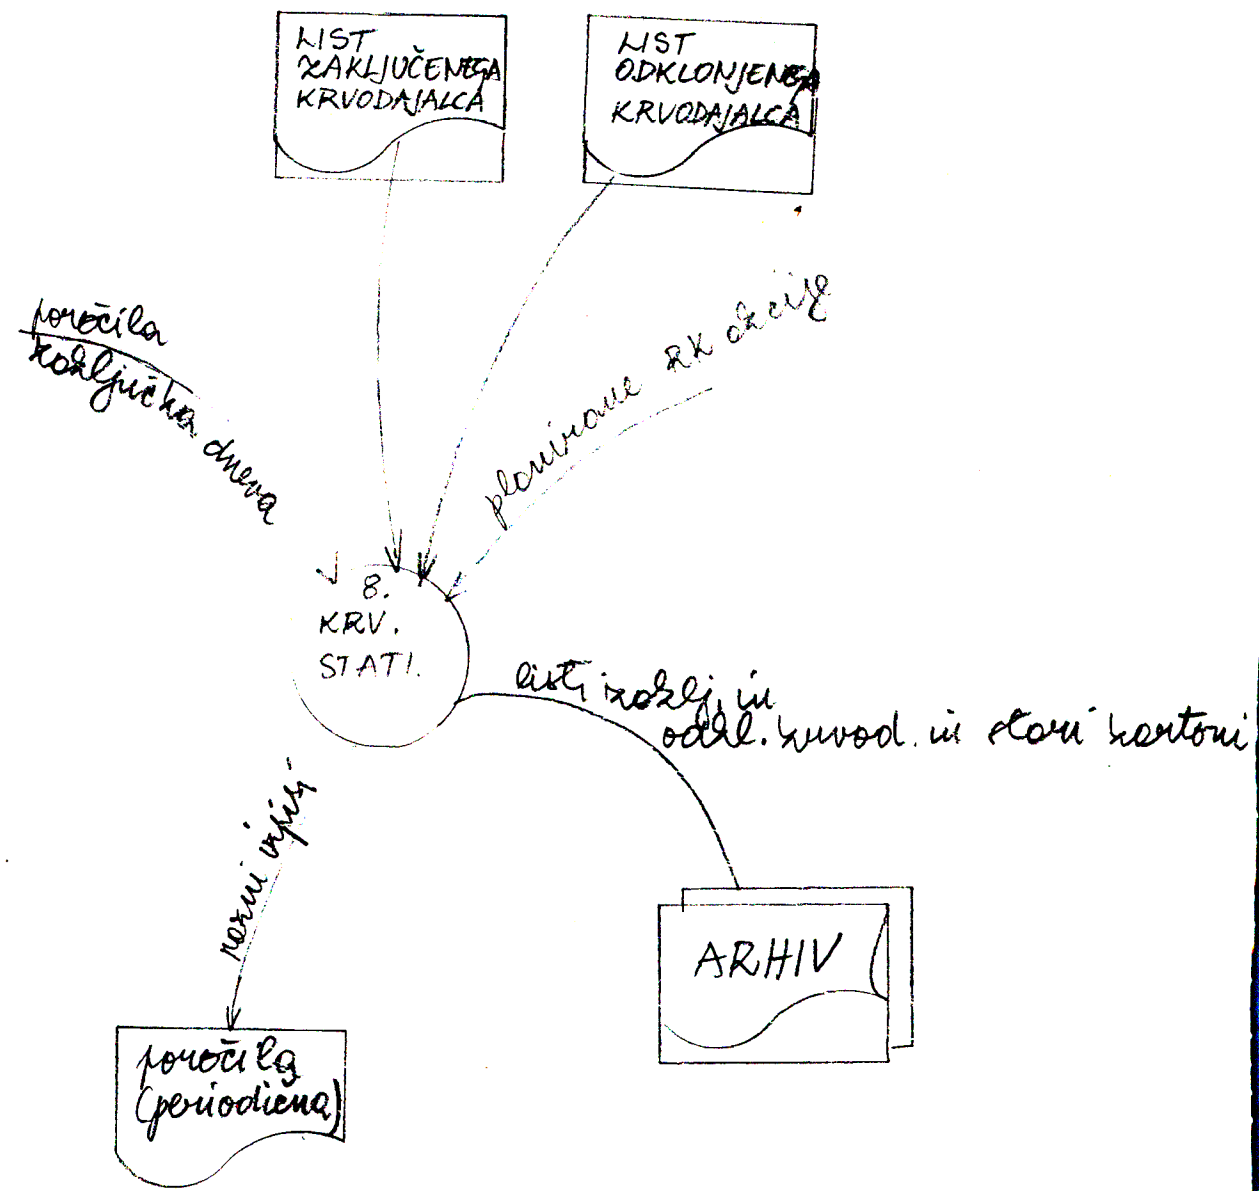 LIST
ZAKLJUČENEGA
KRVODAJALCA
LIST
ODKLONJENEGA
KRVODAJALCA
poročila
zaključka dneva
planirane RK akcije
8.
KRV.
STATI.
listi zaklj. in
odkl. krvod. in stari kartoni
razni izpisi
ARHIV
poročila
(periodična)